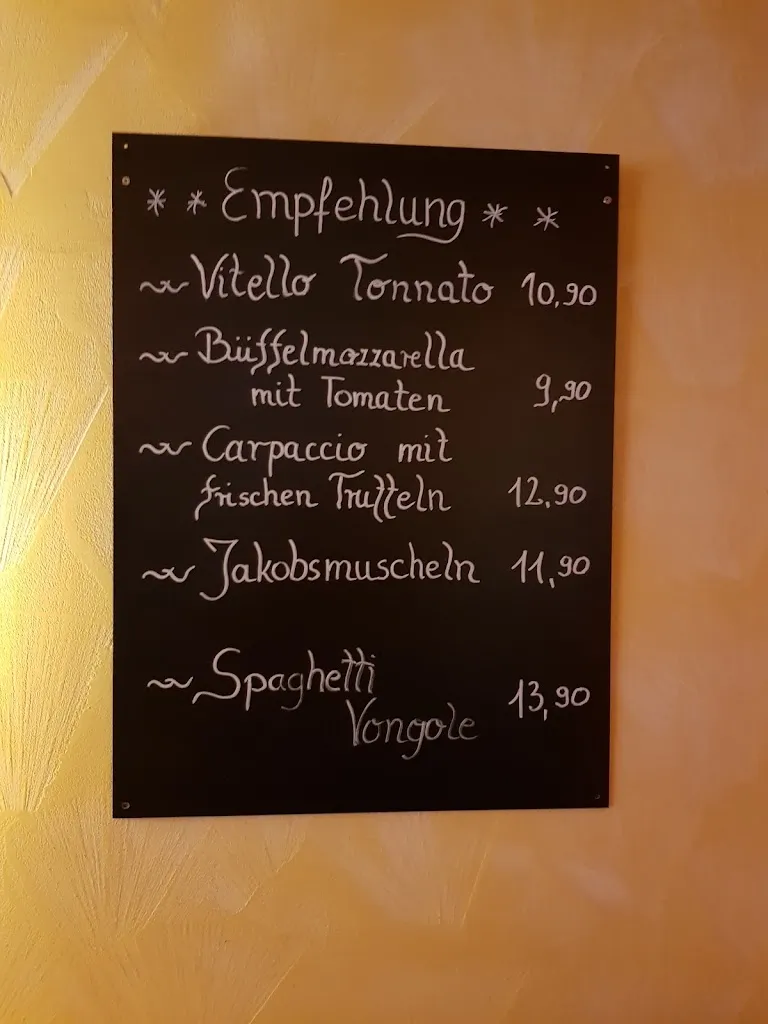 * * Empfehlung * *
~ Vitello Tonnato 10,90
~ Büffelmozzarella
mit Tomaten 9,90
~ Carpaccio mit
frischen Truffeln 12,90
~ Jakobsmuscheln 11,90
~ Spaghetti
Vongole 13,90